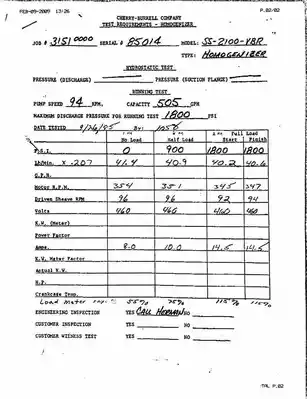 FEB-09-2009 13:26 P.02/02
CHERRY-BURRELL COMPANY
TEST REQUIREMENTS - HOMOGENIZER
JOB # 3151 0000 SERIAL # 85014 MODEL: SS-2100-VBR
TYPE: HOMOGENIZER
HYDROSTATIC TEST
PRESSURE (DISCHARGE) PRESSURE (SUCTION FLANGE)
RUNNING TEST
PUMP SPEED 94 RPM. CAPACITY 505 GPH
MAXIMUM DISCHARGE PRESSURE FOR RUNNING TEST 1800 PSI
DATE TESTED 9/26/95 BY: 1056
Full Load
No Load Half Load Start Finish
P.S.I. 0 900 1800 1800
Lb/Min. X .207 41.4 40.9 40.2 40.6
G.P.H.
Motor R.P.M. 354 351 345 347
Driven Sheave RPM 96 96 92 94
Volts 460 460 460 460
K.W. (Meter)
Power Factor
Amps. 8.0 10.0 14.5 14.5
K.W. Meter Factor
Actual K.W.
H.P.
Crankcase Temp.
Load Meter 55% 75% 115% 115%
ENGINEERING INSPECTION YES CALL HERMAN NO
CUSTOMER INSPECTION YES NO
CUSTOMER WITNESS TEST YES NO
TOTAL P.02